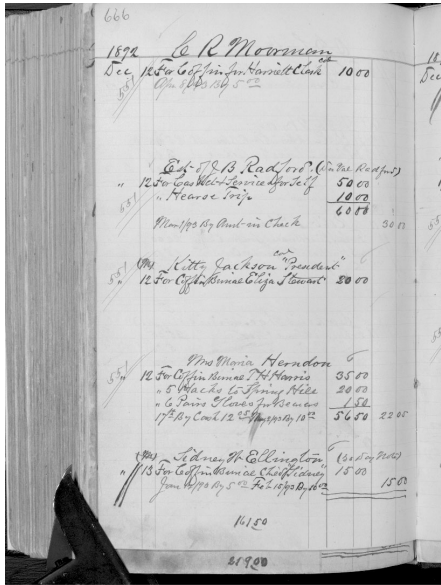 666
1892 C R Moorman
Dec 12 For Coffin for Harriett Clark col 10 00
551 Apr 8/93 By 5 00
Est of J B Radford. (On Val Radford)
" 12 For Casket & Service for Self 50 00
551 " Hearse Trip 10 00
60 00
Mar 1/93 By Amt in Check 30 00
(Mrs) Kitty Jackson col "President"
551 " 12 For Coffin Burial Eliza Stewart 20 00
Mrs Maria Herndon
551 " 12 For Coffin Burial T H Harris 35 00
" 5 Hacks to Spring Hill 20 00
" 6 Pairs Gloves for Bearers 1 50
17th By Cash 12 25 By 10 00 56 50 22 05
(Mrs) Sidney W. Ellington (30 Day Note)
" 13 For Coffin Burial Child "Sidney" 15 00
Jan 14/93 By 5 00 Feb 15/93 By 10 00 15 00
161 50
219 00